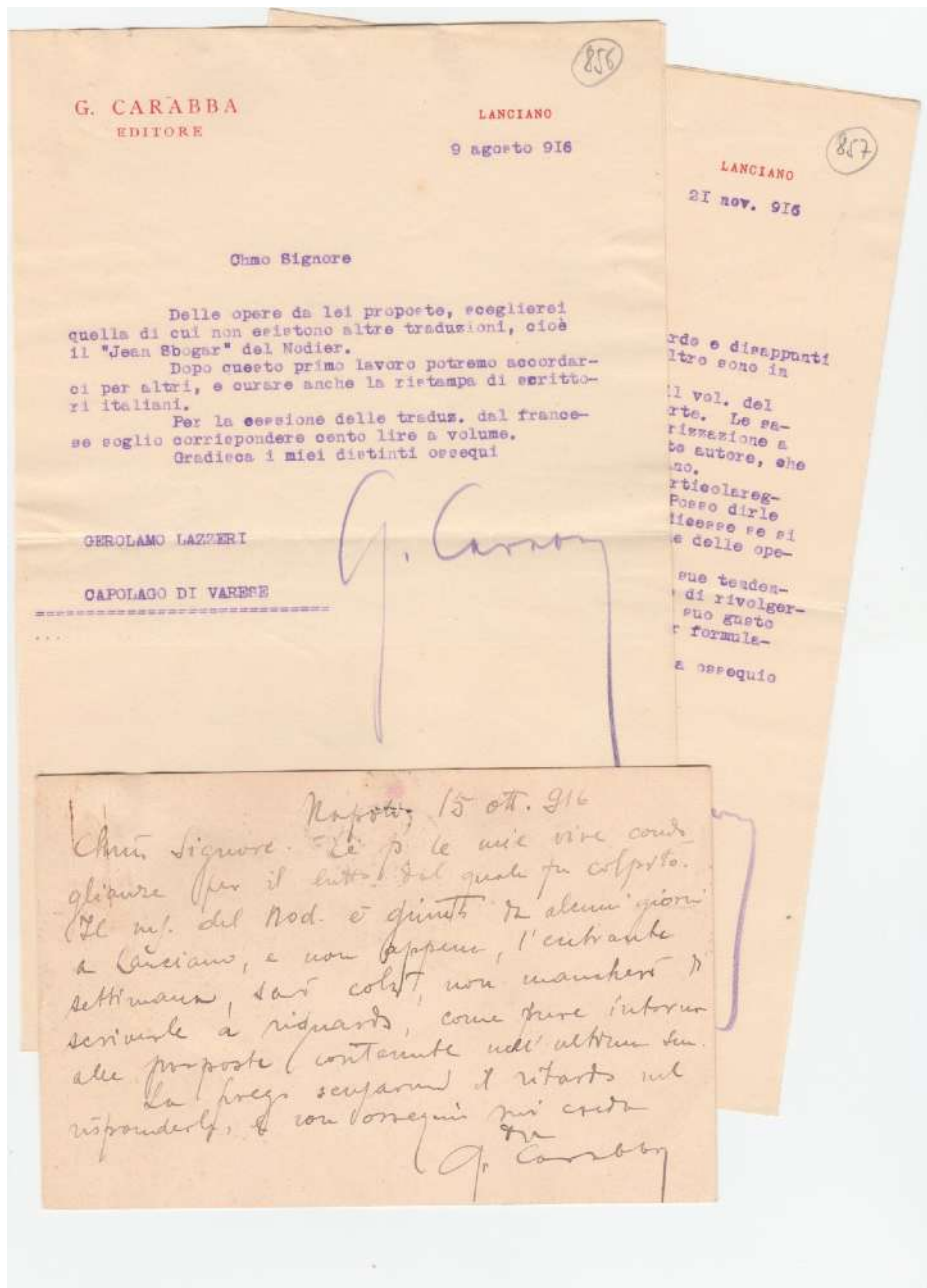 856
G. CARABBA
EDITORE
LANCIANO
9 agosto 916
Chmo Signore
Delle opere da lei proposte, sceglierei
quella di cui non esistono altre traduzioni, cioè
il "Jean Sbogar" del Nodier.
Dopo questo primo lavoro potremo accordar-
ci per altri, e curare anche la ristampa di scritto-
ri italiani.
Per la cessione delle traduz. dal france-
se soglio corrispondere cento lire a volume.
Gradisca i miei distinti ossequi
G. Carabba
GEROLAMO LAZZERI
CAPOLAGO DI VARESE
==============================
...
857
LANCIANO
2I nov. 9I6
rdo e disappunti
ltro sono in
il vol. del
rte. Le sa-
rizzazione a
to autore, che
no.
rticolareg-
Posso dirle
dicesse se si
e delle ope-
sue tenden-
di rivolger-
suo gusto
r formula-
a ossequio
Napoli, 15 ott. 916
Signore. Le le mie vive condo
glianze per il lutto dal quale fu colpito.
Il ms. del Nod. è giunto da alcuni giorni
a Lanciano, e non appena, l'entrante
settimana, sarò colà, non mancherò di
scriverle a riguardo, come pure intorno
alle proposte contenute nell'ultima sua.
La prego scusarmi il ritardo nel
risponderle, e con ossequi mi creda
G. Carabba